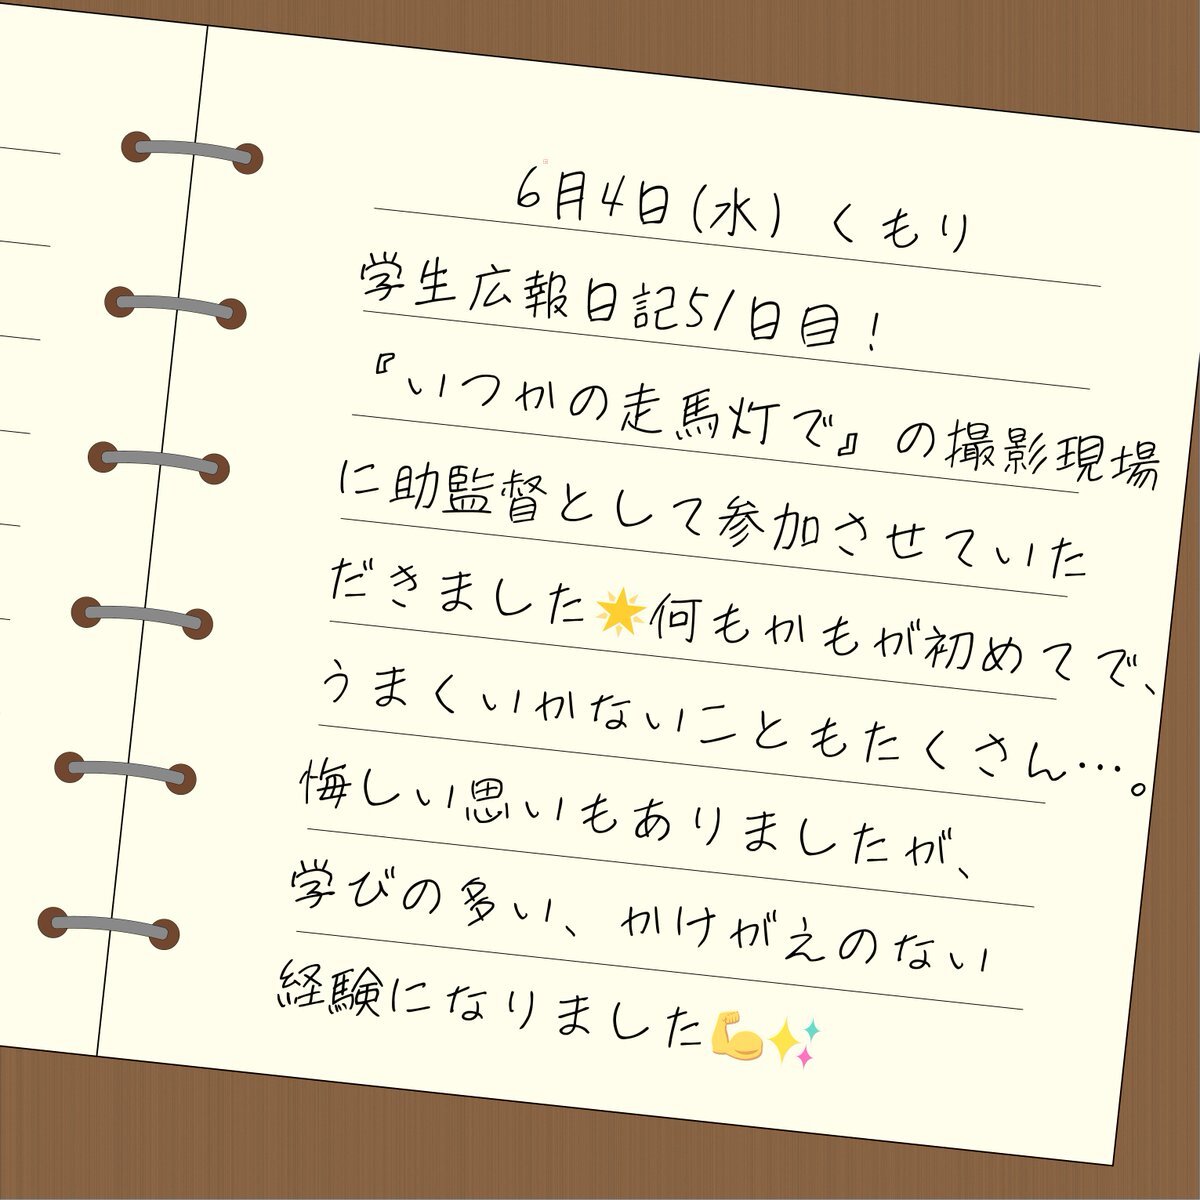 6月4日(水) くもり
学生広報日記51日目!
『いつかの走馬灯で』の撮影現場
に助監督として参加させていた
だきました🌟何もかもが初めてで、
うまくいかないこともたくさん…。
悔しい思いもありましたが、
学びの多い、かけがえのない
経験になりました💪✨